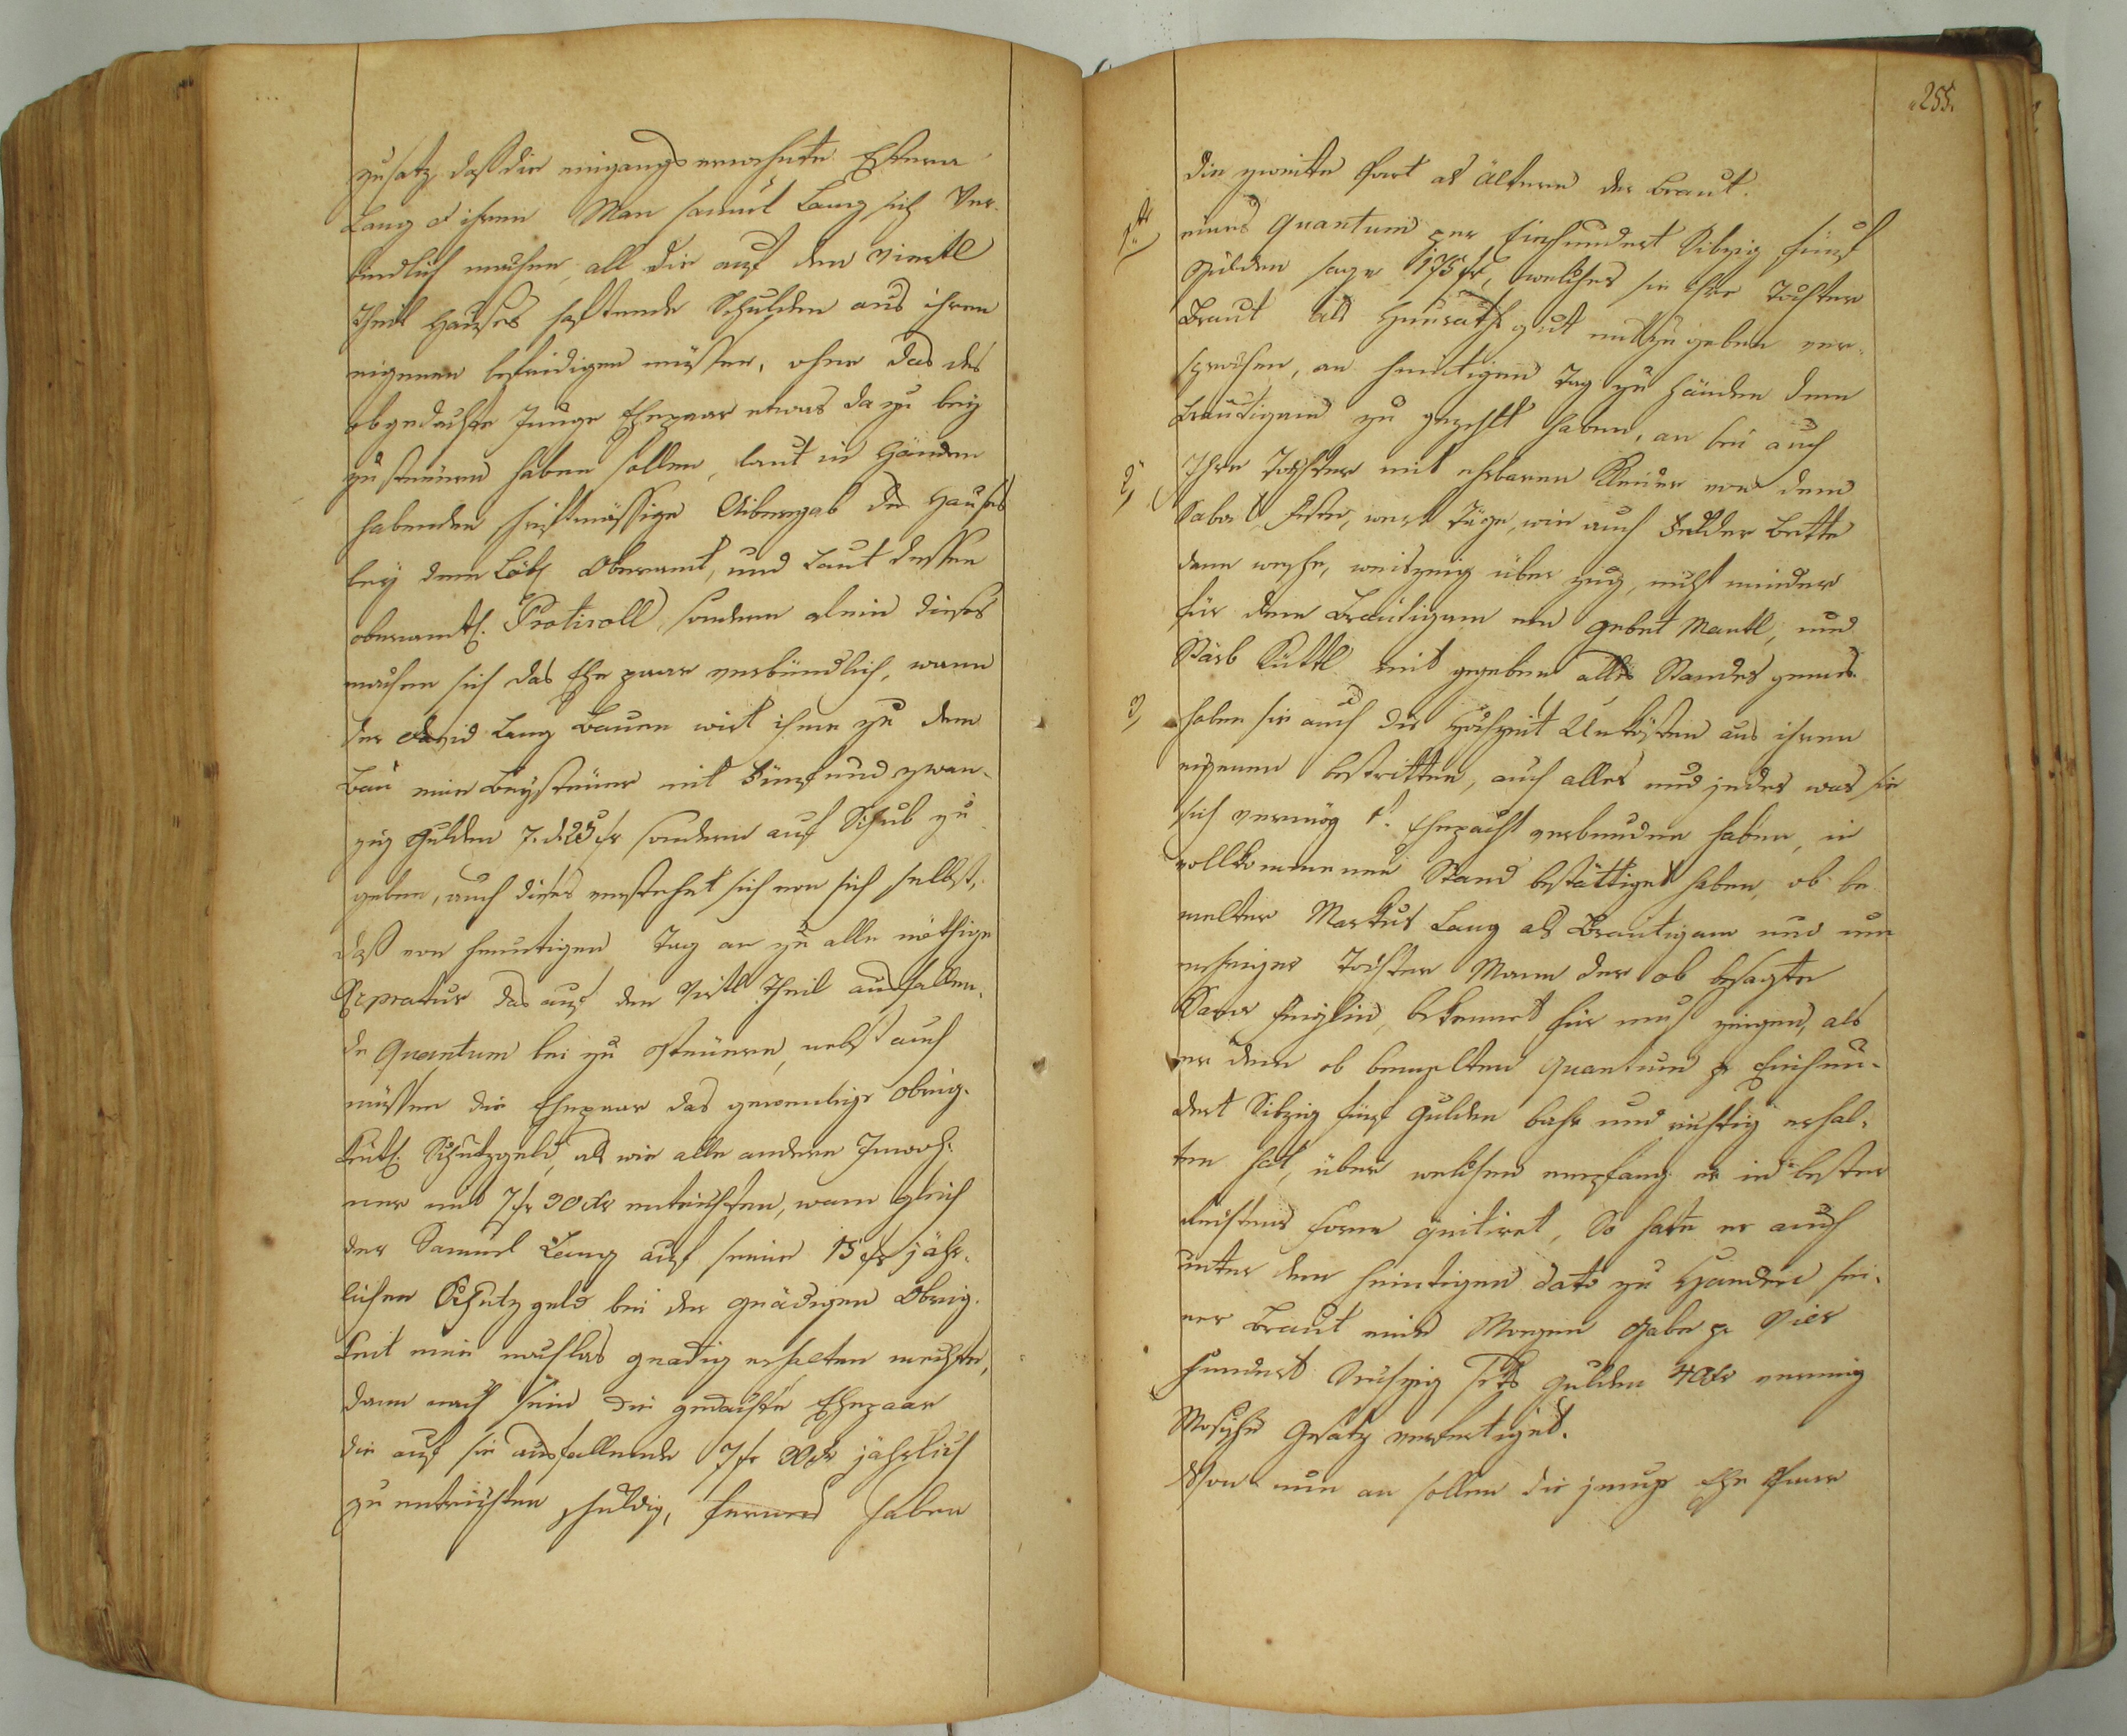 zusatz, daß die eingangs erwehnte Estera
Lang et ihren Man Samuel Lang sich Ver-
bindlich machen, all die auf den viertl
Theil Hauses haftende Schulden aus ihren
eigenen befridigen müssen, ohne das das
obgedachte Junge Ehepaar etwas dazu bey
zusteuern haben sollen, laut in Handen
habenden schriftmässige Uibergab des Hauses
bey dem Löbl Oberamt, und Laut dessen
oberamtl. Protocoll, sondern alein dieses
machen sich das Ehe paar verbündlich, wann
der David Lang Bauen wirt ihme zu dem
Bau eine Beysteuer mit Fünf und zwan-
zig Gulden 25 fr sondern auf Schub zu
geben, auch dieses verstehet sich von sich selbst,
daß von heuntigen Tag an zu alle nöthige
Repratur das auf den Virtl Theil ausfallen-
de Quantum bei zu steuern, nebst auch
müssen die Ehepaar das gewenliche Obrig-
keitl. Schutzgeld, als wie alle andere Inwoh-
ner mit 7 fr 30 xr entrichten, wann gleich
der Samuel Lang auf seine 15 fr jähr-
lichen Schutzgeld bei der gnädigen Obrig-
keit eine nachlas gnädig erhalten mechte,
dann nach sein die gedachte Ehepaar
die auf sie ausfallende 7 fr 30 xr jährlich
zu entrichten schuldig, ferners haben
255.
die zweite Part als Ältern der Braut.
1tes eines Quantum per Einhundert Sibzig fünf
Gulden sage 175 fr, welches sie ihre Tochter
Braut als Heurathsgut mitzugeben ver-
sprochen, an heuntigen Tag zu Händen dem
Bräutigam zu gezehlt haben, an bei auch
2, Ihre Tochter mit ehrbaren Kleider von dem
Sabat Feste, werk Täge, wie auch Felder Bette
dann wesche, weiszeug über zug, nicht minder
für dem Bräutigam ein gebet Mantl, und
Stärb Küttl mit gegeben alles Standes gemes.
3, haben sie auch die Hochzeit Unkösten aus ihren
eigenen bestritten, auch alles und jedes was sie
sich vermög Ehepacht verbunden haben, in
vollkommenen Stand bestättiget haben, ob be
melter Markus Lang als Brautigam und nun
mehriger Tochter Mann der ob besagte
bekennet hür mit zeigen, als
er den ob bemelten Quantum pr Einhun-
dert Sibzig fünf Gulden bahr und richtig erhal-
ten hat, über welchen empfang er in bester
form quitiret, So hate er auch
unter dem heuntigen dato zu Handen sei-
ner Braut eine Morgen Gabe pr Vier
hundert Sechzig Gulden 40 xr vermög
Mosische Gesätz verfertiget.
Von nun an sollen die junge Ehe Paar